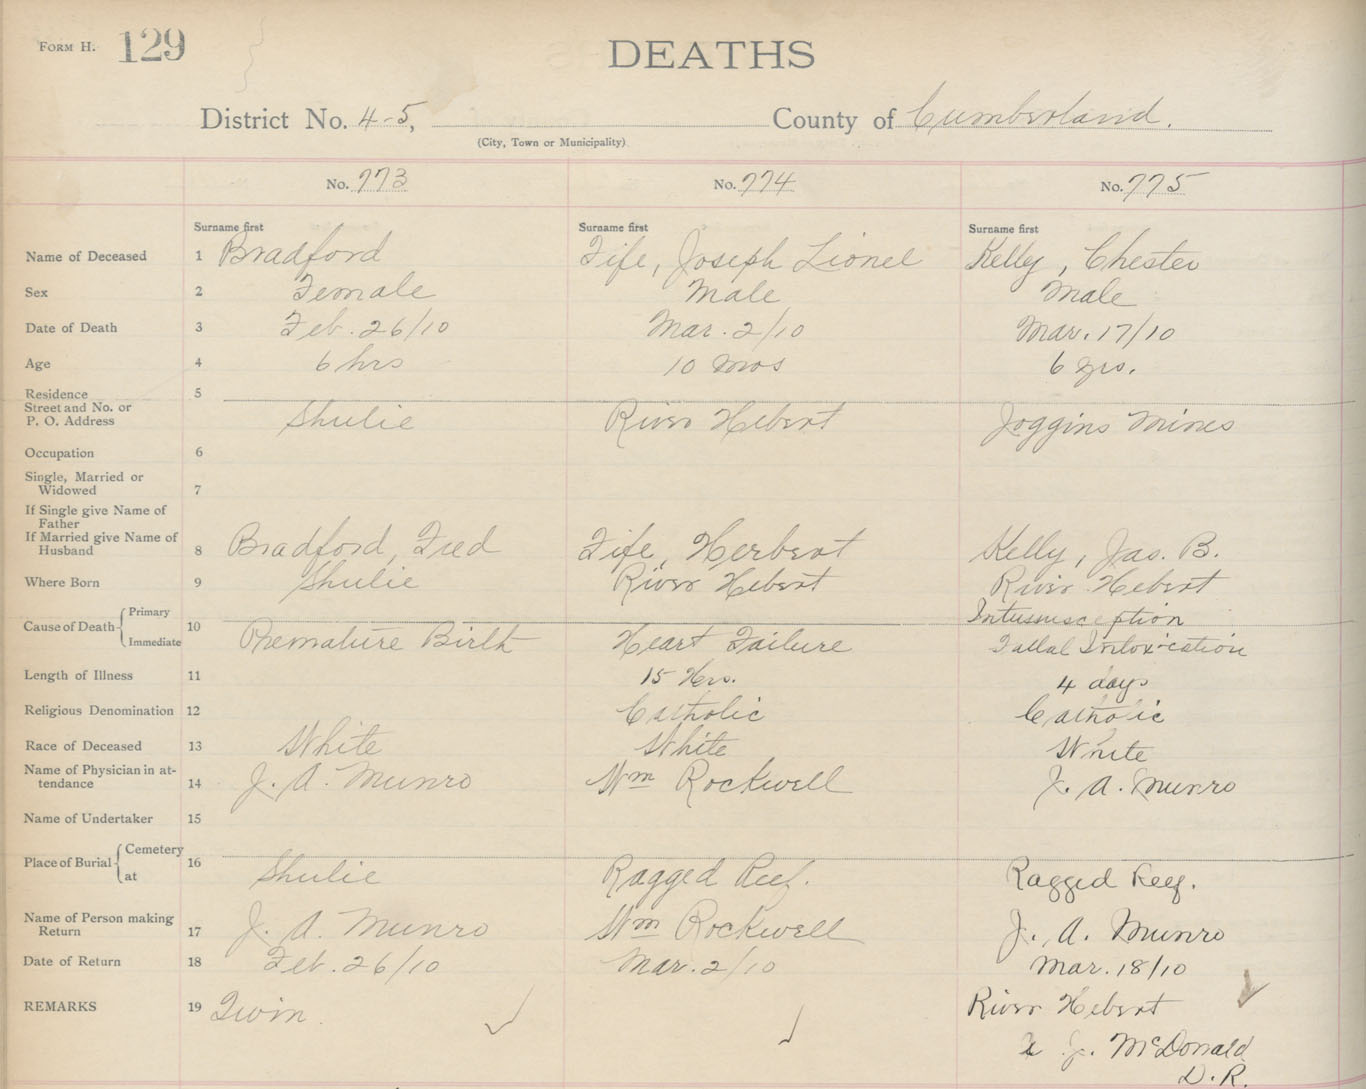 FORM H. 129
DEATHS
District No. 4-5, County of Cumberland.
(City, Town or Municipality)
No. 773 No. 774 No. 775
Surname first Surname first Surname first
Name of Deceased 1 Bradford Fife, Joseph Lionel Kelly, Chester
Sex 2 Female Male Male
Date of Death 3 Feb. 26/10 Mar. 2/10 Mar. 17/10
Age 4 6 hrs 10 mos 6 yrs.
Residence 5
Street and No. or
P. O. Address Shulie River Hebert Joggins Mines
Occupation 6
Single, Married or
Widowed 7
If Single give Name of
Father
If Married give Name of
Husband 8 Bradford, Fred Fife, Herbert Kelly, Jas. B.
Where Born 9 Shulie River Hebert River Hebert
Cause of Death Primary 10 Intussusception
Immediate Premature Birth Heart Failure Intoxication
Length of Illness 11 15 Hrs. 4 days
Religious Denomination 12 Catholic Catholic
Race of Deceased 13 White White White
Name of Physician in at-
tendance 14 J. A. Munro Wm Rockwell J. A. Munro
Name of Undertaker 15
Place of Burial Cemetery 16
at Shulie Ragged Reef. Ragged Reef.
Name of Person making
Return 17 J. A. Munro Wm Rockwell J. A. Munro
Date of Return 18 Feb. 26/10 Mar. 2/10 Mar. 18/10
REMARKS 19 Twin. River Hebert
J. McDonald
D. R.